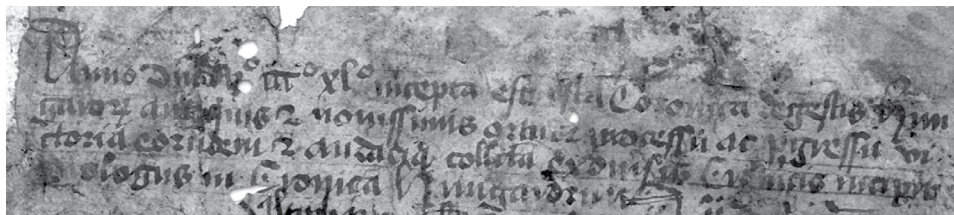 Anno dni mº cccº xlº incepta est ista Coronica de gestis Hun
garoꝝ antiquis ⁊ nouissimis ortu ⁊ processu ac pgressu vi
ctoria eorūdem ⁊ audacia collcta ex diuersis Cronicis incipit
Prologus in Cronica Hungarorum